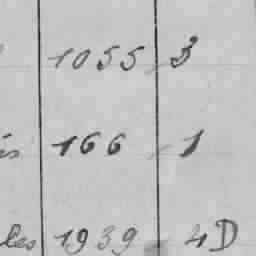 1055 3
is 166 1
les 1939 4D